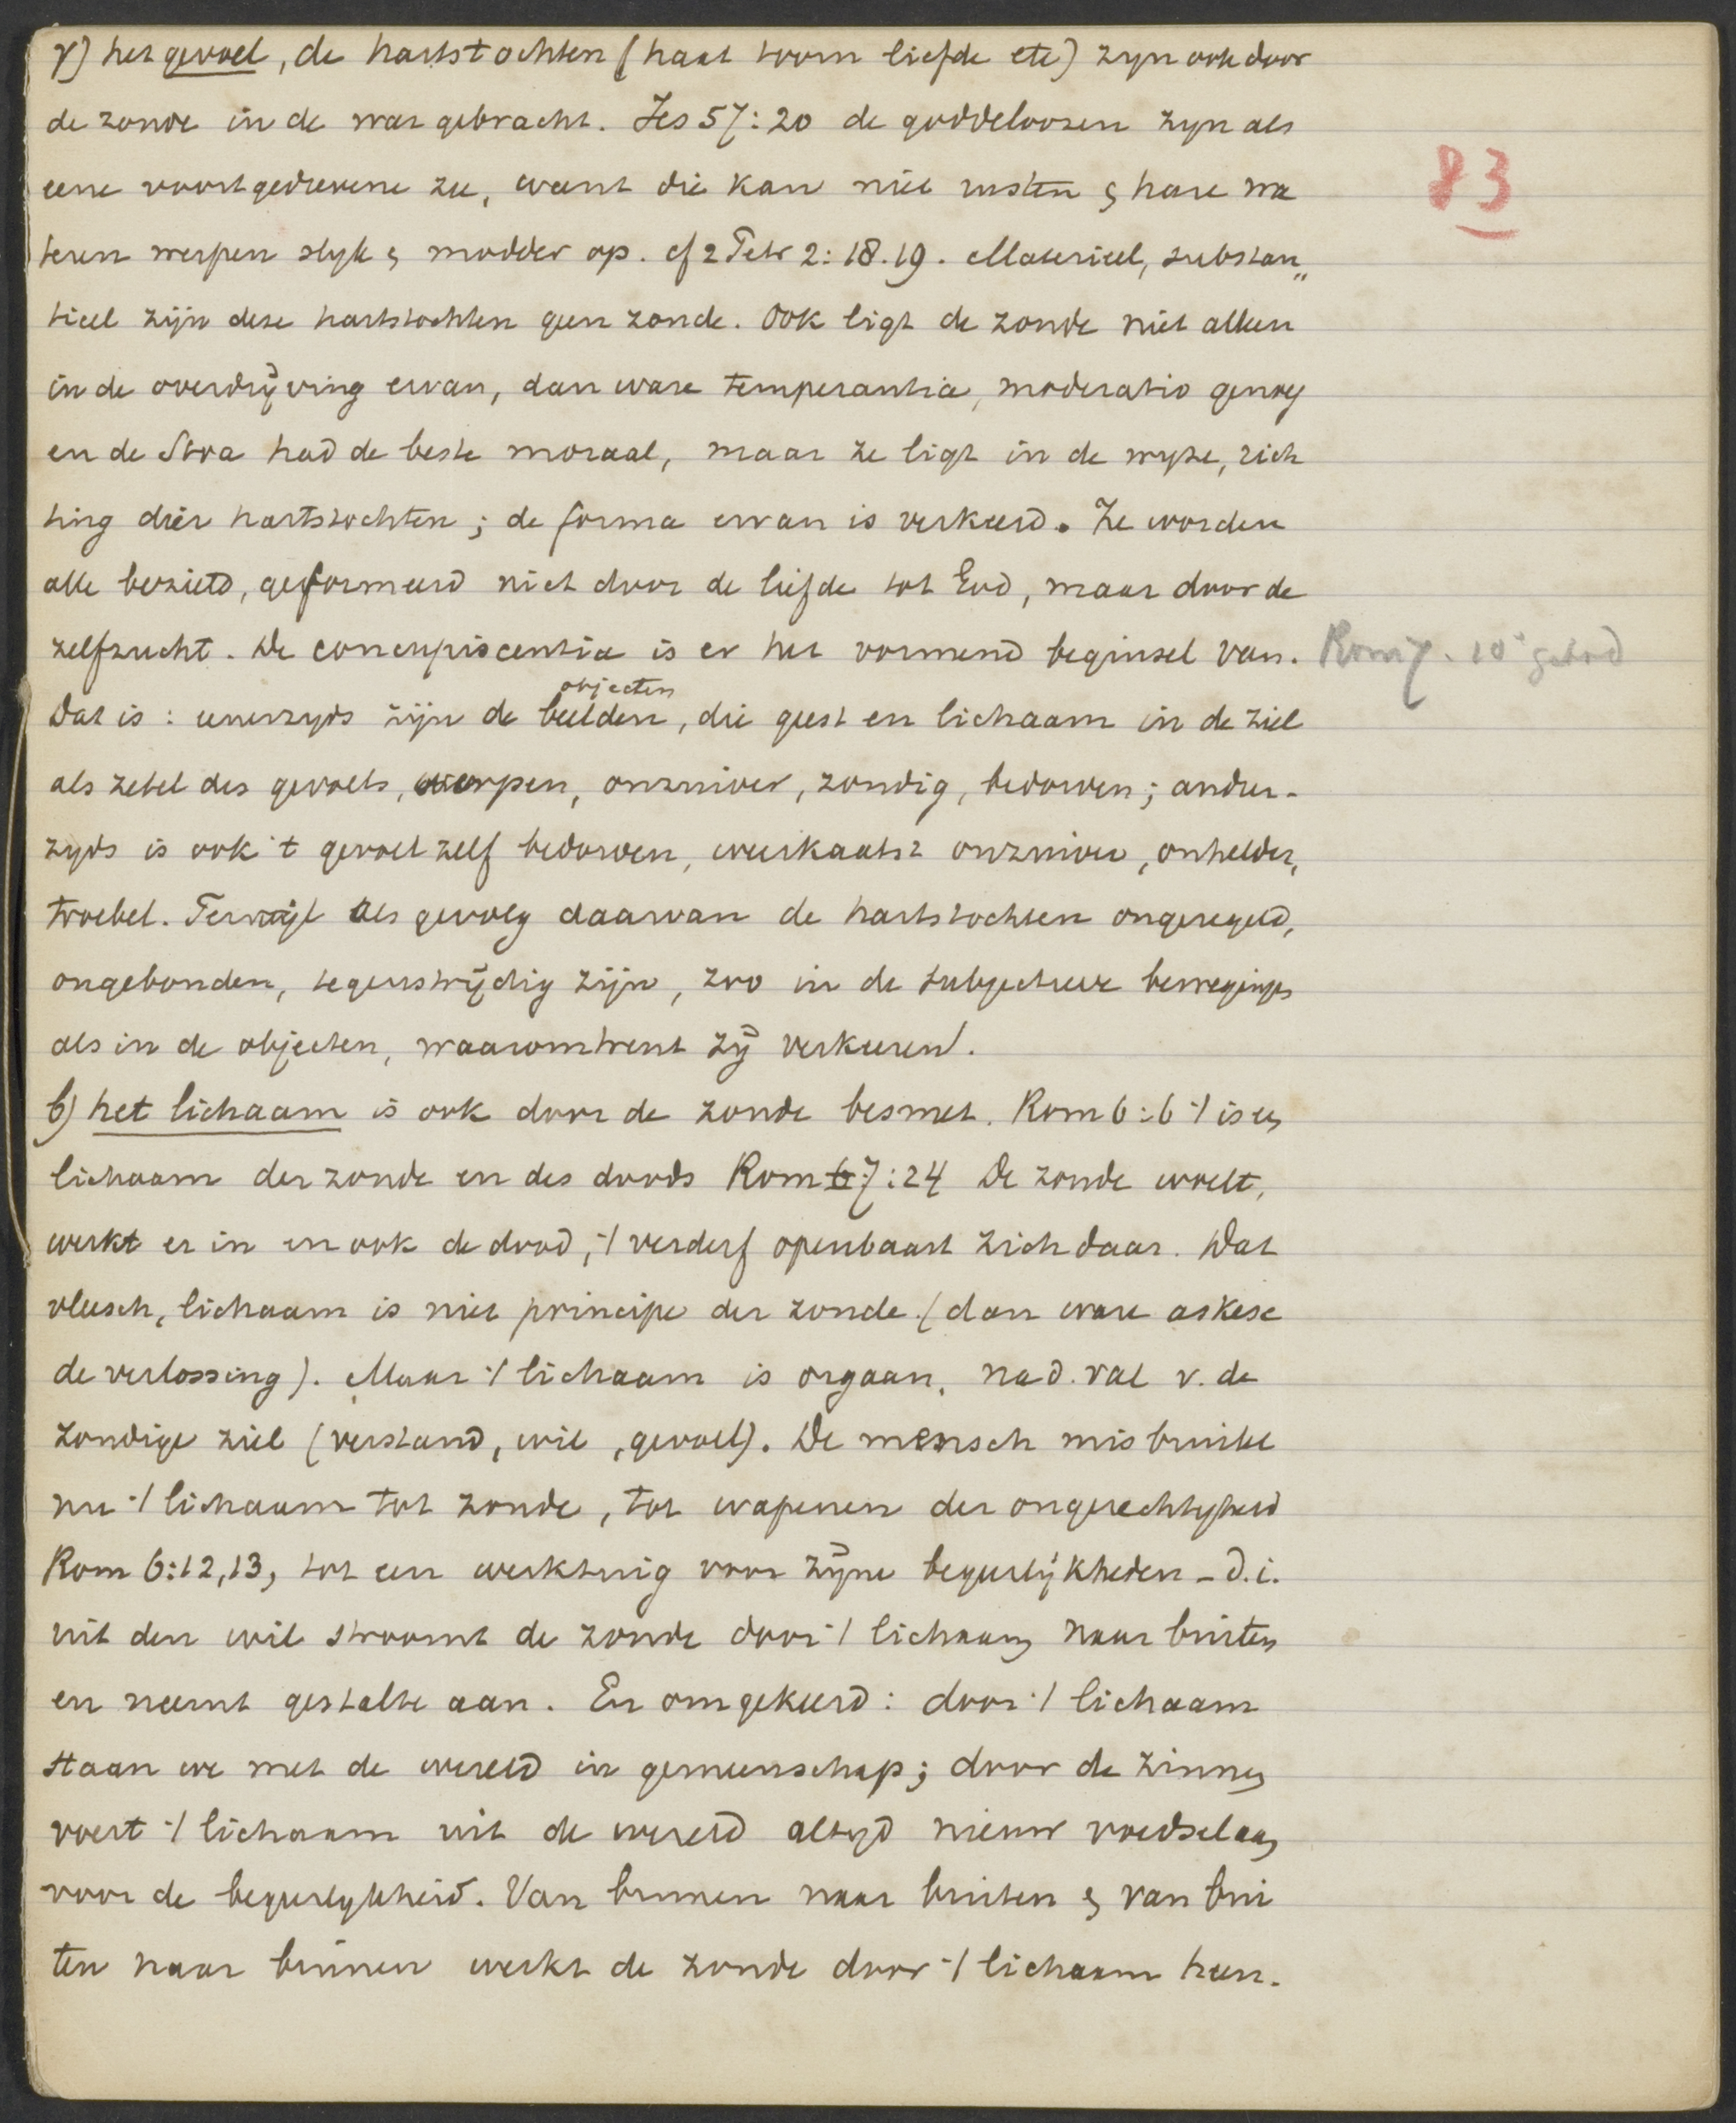 γ) het gevoel, de hartstochten (haat toorn liefde etc) zyn ook door
de zonde in de war gebracht. Jes 57:20 de goddeloozen zyn als
eene voortgedrevene zee, want die kan niet rusten & hare wa
teren werpen slyk & modder op. cf 2 Petr 2:18.19. Materieel, substan„
tieel zijn deze hartstochten geen zonde. Ook ligt de zonde niet alleen
in de overdrijving ervan, dan ware temperantia, moderatio genoeg
en de Stoa had de beste moraal, maar ze ligt in de wyze, rich
ting dier hartstochten; de forma ervan is verkeerd. Ze worden
alle bezield, geformeerd niet door de liefde tot God, maar door de
zelfzucht. De concupiscentia is er het vormend beginsel van.
Rom 7. 10e gebod
objecten
Dat is: eenerzyds zijn de beelden, die geest en lichaam in de ziel
als zetel des gevoels, werpen, onzuiver, zondig, bedorven; ander-
zyds is ook 't gevoel zelf bedorven, weerkaatst onzuiver, onhelder,
troebel. Terwijl als gevolg daarvan de hartstochten ongeregeld,
ongebonden, tegenstrijdig zijn, zoo in de subjectieve bewegingen
als in de objecten, waaromtrent zij verkeeren.
b) het lichaam is ook door de zonde besmet. Rom 6:6 't is een
lichaam der zonde en des doods Rom 6 7:24 De zonde woelt,
werkt er in en ook de dood, 't verderf openbaart zich daar. Dat
vleesch, lichaam is niet principe der zonde (dan ware askese
de verlossing). Maar 't lichaam is orgaan, na d. val v. de
zondige ziel (verstand, wil, gevoel). De mensch misbruikt
nu 't lichaam tot zonde, tot wapenen der ongerechtigheid
Rom 6:12,13, tot een werktuig voor zijne begeerlijkheden - d.i.
uit den wil stroomt de zonde door 't lichaam naar buiten
en neemt gestalte aan. En omgekeerd: door 't lichaam
staan we met de wereld in gemeenschap; door de zinnen
voert 't lichaam uit de wereld altyd nieuw voedsel aan
voor de begeerlykheid. Van binnen naar buiten & van bui
ten naar binnen werkt de zonde door 't lichaam heen.
83